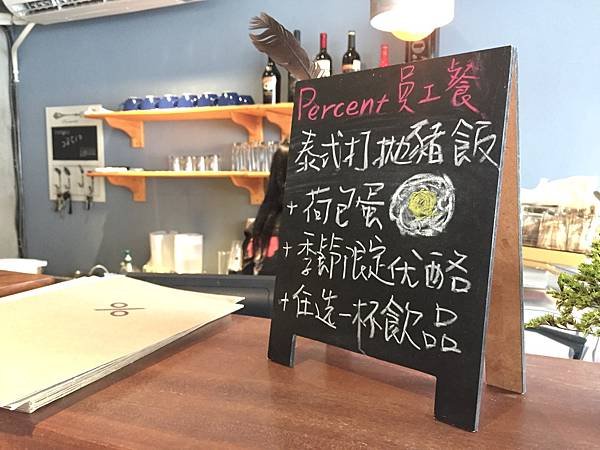 Percent 員工餐
泰式打拋豬飯
+荷包蛋
+季節限定优酪
+任选一杯飲品
%